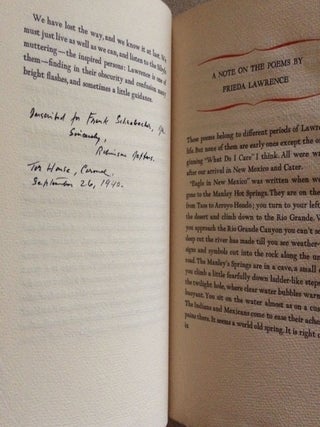 We have lost the way, and we know it at last. We
must just live as well as we can, and listen to the Sibyls
muttering—the inspired persons: Lawrence is one of
them—finding in their obscurity and confusion, many
bright flashes, and sometimes a little guidance.
Inscribed for Frank Schwabacher, Jr.
Sincerely,
Robinson Jeffers.
Tor House, Carmel.
September 26, 1940.
A NOTE ON THE POEMS BY
FRIEDA LAWRENCE
These poems belong to different periods of Lawren
life. But none of them are early ones except the on
ginning "What Do I Care" I think. All were wr
after our arrival in New Mexico and later.
"Eagle in New Mexico" was written when we v
the Manley Hot Springs. They are on the
from Taos to Arroyo Hondo; you turn to your left
the desert and climb down to the Rio Grande. W
you approach the Rio Grande Canyon you can't se
deep cut the river has made till you see weather-
signs and symbols cut into the rock along the un
edge. The Manley's Springs are in a cave, a small c
you climb a little fearfully down ladder-like steps
the twilight hole, where clear water bubbles warm
buoyant. You sit on the water almost as on a cus
The Indians and Mexicans come to ease their aches
pains there. It seems a world old spring. It is right c